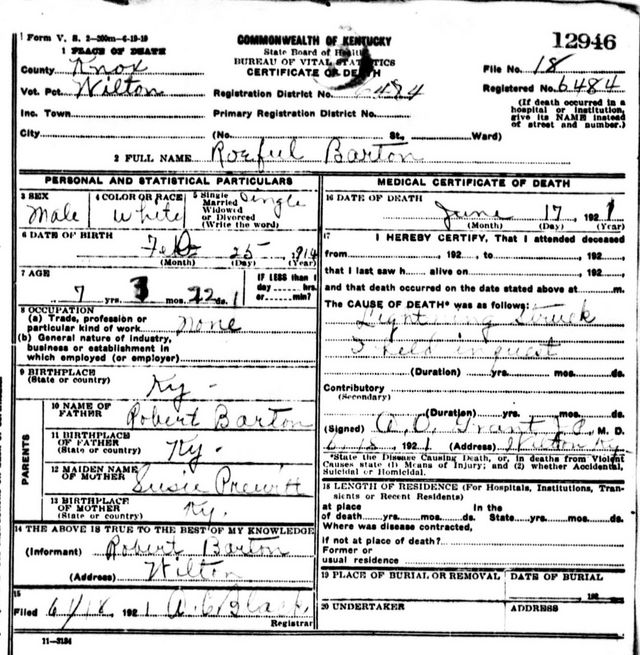 1 Form V. S. 2—200m—6-19-19
COMMONWEALTH OF KENTUCKY
State Board of Health
BUREAU OF VITAL STATISTICS
CERTIFICATE OF DEATH
12946
1 PLACE OF DEATH
County Knox
File No. 18
Vot. Pct. Wilton
Registration District No. 6484
Registered No. 6484
(If death occurred in a hospital or institution, give its NAME instead of street and number.)
Inc. Town
Primary Registration District No.
City (No. St., Ward)
2 FULL NAME Barton
PERSONAL AND STATISTICAL PARTICULARS
3 SEX
Male
4 COLOR OR RACE
White
5 Single
Married
Widowed
or Divorced
(Write the word)
Single
6 DATE OF BIRTH
Feb 25, 1914
(Month) (Day) (Year)
7 AGE
7 yrs. 3 mos. 22 ds.
IF LESS than 1
day hrs.
or min?
8 OCCUPATION
(a) Trade, profession or
particular kind of work None
(b) General nature of industry,
business or establishment in
which employed (or employer)
9 BIRTHPLACE
(State or country)
Ky.
PARENTS
10 NAME OF
FATHER
Robert Barton
11 BIRTHPLACE
OF FATHER
(State or country)
Ky.
12 MAIDEN NAME
OF MOTHER
Susie Prewitt
13 BIRTHPLACE
OF MOTHER
(State or country)
Ky.
14 THE ABOVE IS TRUE TO THE BEST OF MY KNOWLEDGE
(Informant) Robert Barton
(Address) Wilton
15
Filed 6/18, 1921 Registrar
11-3184
MEDICAL CERTIFICATE OF DEATH
16 DATE OF DEATH
June 17, 1921
(Month) (Day) (Year)
17 I HEREBY CERTIFY, That I attended deceased
from , 192 , to , 192 ,
that I last saw h alive on , 192 ,
and that death occurred on the date stated above at m.
The CAUSE OF DEATH* was as follows:
Lightning Struck
I held inquest
(Duration) yrs. mos. ds.
Contributory
(Secondary)
(Duration) yrs. mos. ds.
(Signed) M. D.
1921 (Address) Wilton Ky.
*State the Disease Causing Death, or, in deaths from Violent
Causes state (1) Means of Injury; and (2) whether Accidental,
Suicidal or Homicidal.
18 LENGTH OF RESIDENCE (For Hospitals, Institutions, Tran-
sients or Recent Residents)
At place In the
of death yrs. mos. ds. State yrs. mos. ds.
Where was disease contracted,
if not at place of death?
Former or
usual residence
19 PLACE OF BURIAL OR REMOVAL
DATE OF BURIAL
, 192
20 UNDERTAKER
ADDRESS